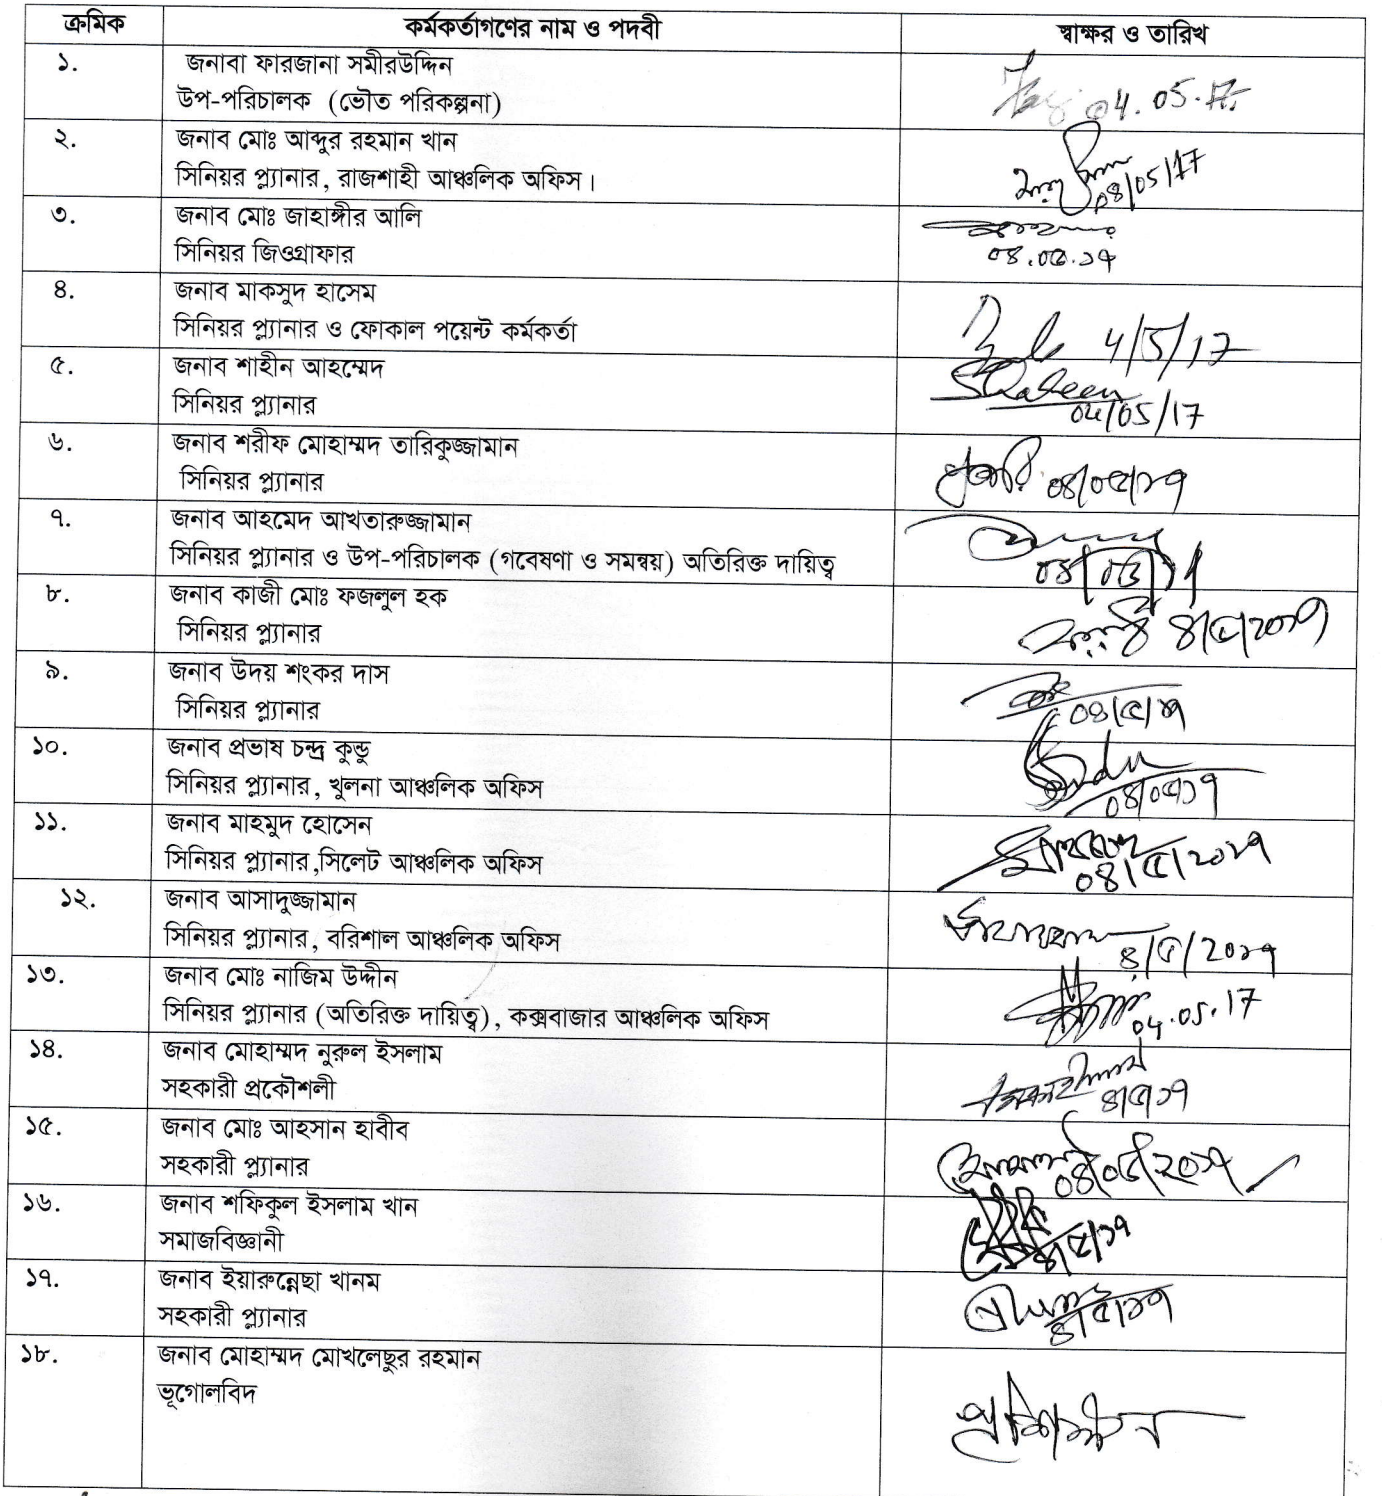 ক্রমিক কর্মকর্তাগণের নাম ও পদবী স্বাক্ষর ও তারিখ
১. জনাবা ফারজানা সমীরউদ্দিন
উপ-পরিচালক (ভৌত পরিকল্পনা) 04.05.17
২. জনাব মোঃ আব্দুর রহমান খান
সিনিয়র প্ল্যানার, রাজশাহী আঞ্চলিক অফিস। 08/05/17
৩. জনাব মোঃ জাহাঙ্গীর আলি
সিনিয়র জিওগ্রাফার ০৪.০৫.১৭
৪. জনাব মাকসুদ হাসেম
সিনিয়র প্ল্যানার ও ফোকাল পয়েন্ট কর্মকর্তা 4/5/17
৫. জনাব শাহীন আহম্মেদ Shaheen
সিনিয়র প্ল্যানার 04/05/17
৬. জনাব শরীফ মোহাম্মদ তারিকুজ্জামান
সিনিয়র প্ল্যানার ০৪/০৫/১৭
৭. জনাব আহমেদ আখতারুজ্জামান
সিনিয়র প্ল্যানার ও উপ-পরিচালক (গবেষণা ও সমন্বয়) অতিরিক্ত দায়িত্ব
৮. জনাব কাজী মোঃ ফজলুল হক
সিনিয়র প্ল্যানার ৪/৫/২০১৭
৯. জনাব উদয় শংকর দাস
সিনিয়র প্ল্যানার ০৪/৫/১৭
১০. জনাব প্রভাষ চন্দ্র কুন্ডু
সিনিয়র প্ল্যানার, খুলনা আঞ্চলিক অফিস ০৪/০৫/১৭
১১. জনাব মাহমুদ হোসেন
সিনিয়র প্ল্যানার,সিলেট আঞ্চলিক অফিস ০৪/৫/২০১৭
১২. জনাব আসাদুজ্জামান
সিনিয়র প্ল্যানার, বরিশাল আঞ্চলিক অফিস ৪/৫/২০১৭
১৩. জনাব মোঃ নাজিম উদ্দীন
সিনিয়র প্ল্যানার (অতিরিক্ত দায়িত্ব), কক্সবাজার আঞ্চলিক অফিস 04.05.17
১৪. জনাব মোহাম্মদ নুরুল ইসলাম
সহকারী প্রকৌশলী ৪/৫/১৭
১৫. জনাব মোঃ আহসান হাবীব
সহকারী প্ল্যানার ০৪/০৫/২০১৭
১৬. জনাব শফিকুল ইসলাম খান
সমাজবিজ্ঞানী ৪/৫/১৭
১৭. জনাব ইয়ারুন্নেছা খানম
সহকারী প্ল্যানার ৪/৫/১৭
১৮. জনাব মোহাম্মদ মোখলেছুর রহমান
ভূগোলবিদ
প্রশিক্ষন